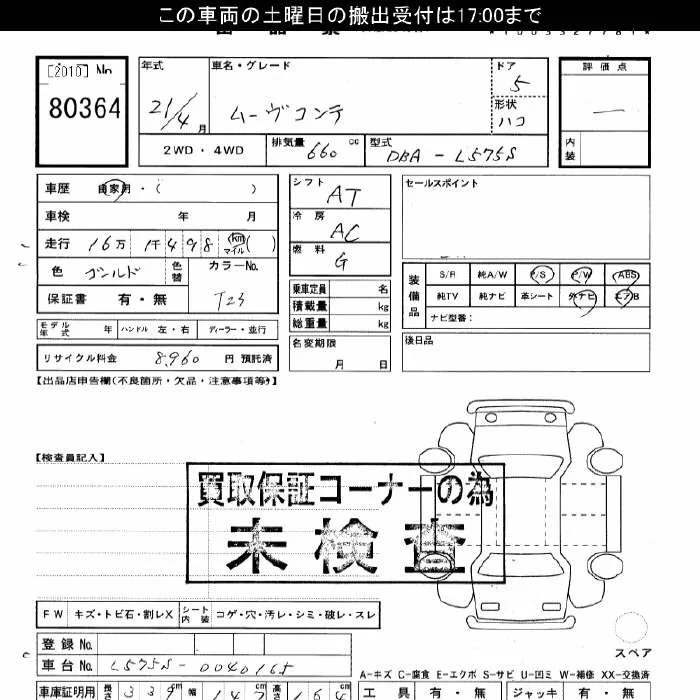 この車両の土曜日の搬出受付は17:00まで
[2010] No
80364
年式 21/4 月
車名・グレード ムーヴコンテ
ドア 5
形状 ハコ
評価点 —
内装
2WD・4WD
排気量 660 cc
型式 DBA - L575S
車歴 自家用・( )
車検 年 月
走行 16万 1千498 km マイル ( )
色 ゴールド 色替
カラーNo. T23
保証書 有・無
シフト AT
冷房 AC
燃料 G
乗車定員 名
積載量 kg
総重量 kg
名変期限 月 日
セールスポイント
装備品
S/R 純A/W P/S P/W ABS
純TV 純ナビ 革シート 外ナビ エアB
ナビ型番:
後日品
モデル年式 年 ハンドル 左・右 ディーラー・並行
リサイクル料金 8,960 円 預託済
【出品店申告欄(不良箇所・欠品・注意事項等)】
【検査員記入】
買取保証コーナーの為
未検査
FW キズ・トビ石・割レX シート内装 コゲ・穴・汚レ・シミ・破レ・スレ
スペア
登録No.
車台No. L575S-0040165
A-キズ C-腐食 E-エクボ S-サビ U-凹ミ W-補修 XX-交換済
車庫証明用 長さ 339 cm 幅 147 高さ 164
工具 有・無 ジャッキ 有・無